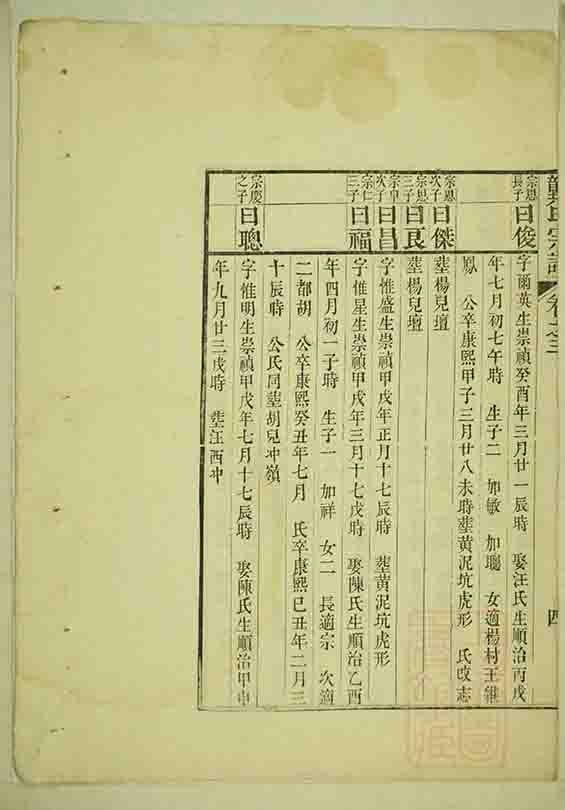 龔氏宗譜 卷之三 四
宗恩長子 曰俊
字爾英生崇禎癸酉年三月廿一辰時 娶汪氏生順治丙戌
年七月初七午時 生子二 加敏 加聰 女適楊村王維
鳳 公卒康熙甲子三月廿八未時塟黄泥坑虎形 氏改志
宗恩次子 曰傑
塟楊兒壇
宗恩三子 曰良
塟楊兒壇
宗申次子 曰昌
字惟盛生崇禎甲戌年正月十七辰時 塟黄泥坑虎形
宗仁三子 曰福
字惟星生崇禎甲戌年三月十七戌時 娶陳氏生順治乙酉
年四月初一子時 生子一 加祥 女二 長適宗 次適
二都胡 公卒康熙癸丑年七月 氏卒康熙己丑年二月三
十辰時 公氏同塟胡兒冲嶺
宗慶之子 曰聰
字惟明生崇禎甲戌年七月十七辰時 娶陳氏生順治甲申
年九月廿三戌時 塟汪西冲